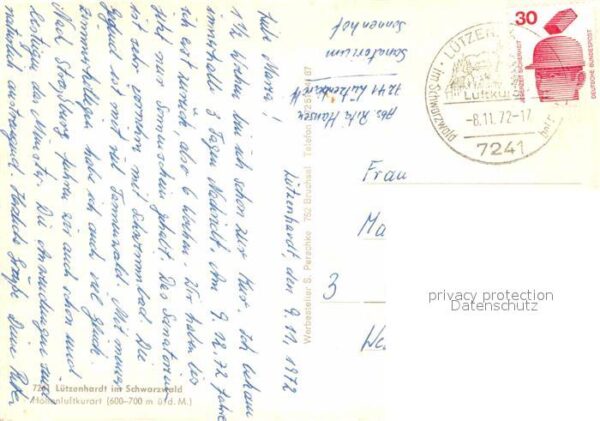 Lützenhardt, den 9.11.1972
Liebe Maria!
1½ Wochen bin ich schon zur Kur. Ich bekam
innerhalb 3 Tagen Nachricht. Am 9.12.72 fahre
ich erst zurück, also 6 Wochen. Wir haben bis
jetzt nur Sonnenschein gehabt. Das Sanatorium
ist sehr vornehm mit Schwimmbad. Die
Gegend ist mit viel Tannenwald. Mit meiner
Zimmerkollegin habe ich auch viel Glück.
Nach Straßburg fahren wir auch schon und
besteigen das Münster. Die Anwendungen sind
natürlich anstrengend. Herzliche Grüße Deine
Abs. Rita Hansen
7241 Lützenhardt
Sanatorium
Sonnenhof
Werbeatelier S. Perschke 752 Bruchsal Telefon
30
JEDERZEIT SICHERHEIT
DEUTSCHE BUNDESPOST
LÜTZEN
im Schwarzwald
Luftkur
-8.11.72-17
7241
Frau
Ma
3
We
privacy protection
Datenschutz
Lützenhardt im Schwarzwald
Höhenluftkurort (600-700 m ü. d. M.)